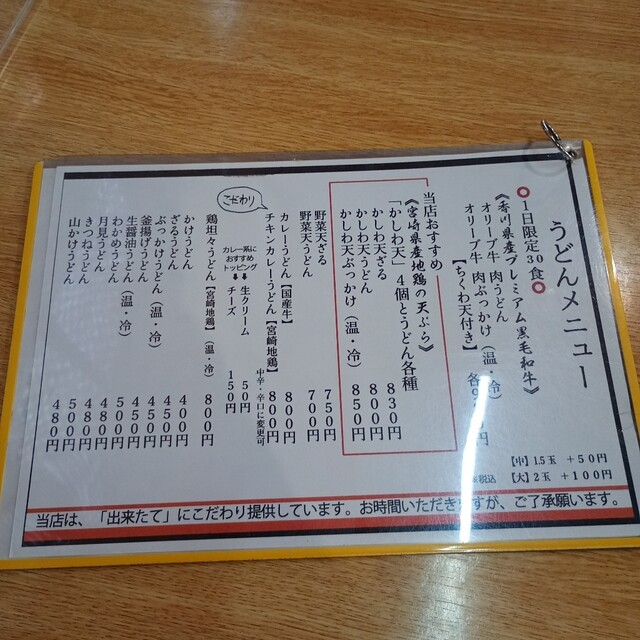 うどんメニュー
【中】1.5玉 +50円
【大】2玉 +100円
税込
1日限定30食
《香川県産プレミアム黒毛和牛》
オリーブ牛 肉うどん
オリーブ牛 肉ぶっかけ（温・冷）
【ちくわ天付き】
当店おすすめ
《宮崎県産地鶏の天ぷら》
「かしわ天」4個とうどん各種
かしわ天ざる 830円
かしわ天うどん 800円
かしわ天ぶっかけ（温・冷） 850円
野菜天ざる 750円
野菜天うどん 700円
カレーうどん【国産牛】 800円
チキンカレーうどん【宮崎地鶏】 800円
中辛・辛口に変更可
カレー系におすすめトッピング
➡生クリーム 50円
➡チーズ 150円
こだわり
鶏坦々うどん【宮崎地鶏】（温・冷） 800円
かけうどん 400円
ざるうどん 450円
ぶっかけうどん（温・冷） 450円
釜揚げうどん 450円
生醤油うどん（温・冷） 500円
わかめうどん 480円
月見うどん 480円
きつねうどん
山かけうどん 480円
当店は、「出来たて」にこだわり提供しています。お時間いただきますが、ご了承願います。